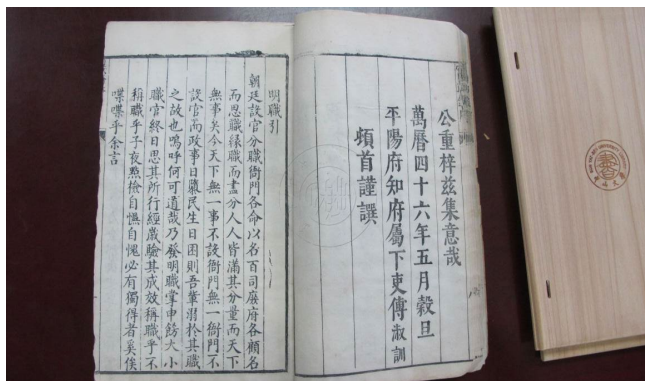 公重梓茲集意哉
萬曆四十六年五月穀旦
平陽府知府屬下吏傅淑訓
頓首謹譔
明職引
朝廷設官分職衙門各命以名百司庶府各顧名
而思職緣職而盡分人人皆滿其分量而天下
無事矣今天下無一事不設衙門無一衙門不
設官而政事日隳民生日困則吾輩溺於其職
之故也嗚呼何可道哉乃發明職掌申飭大小
職官終日思其所行經歲驗其成效稱職乎不
稱職乎子夜點檢自慊自愧必有獨得者奚俟
喋喋乎余言